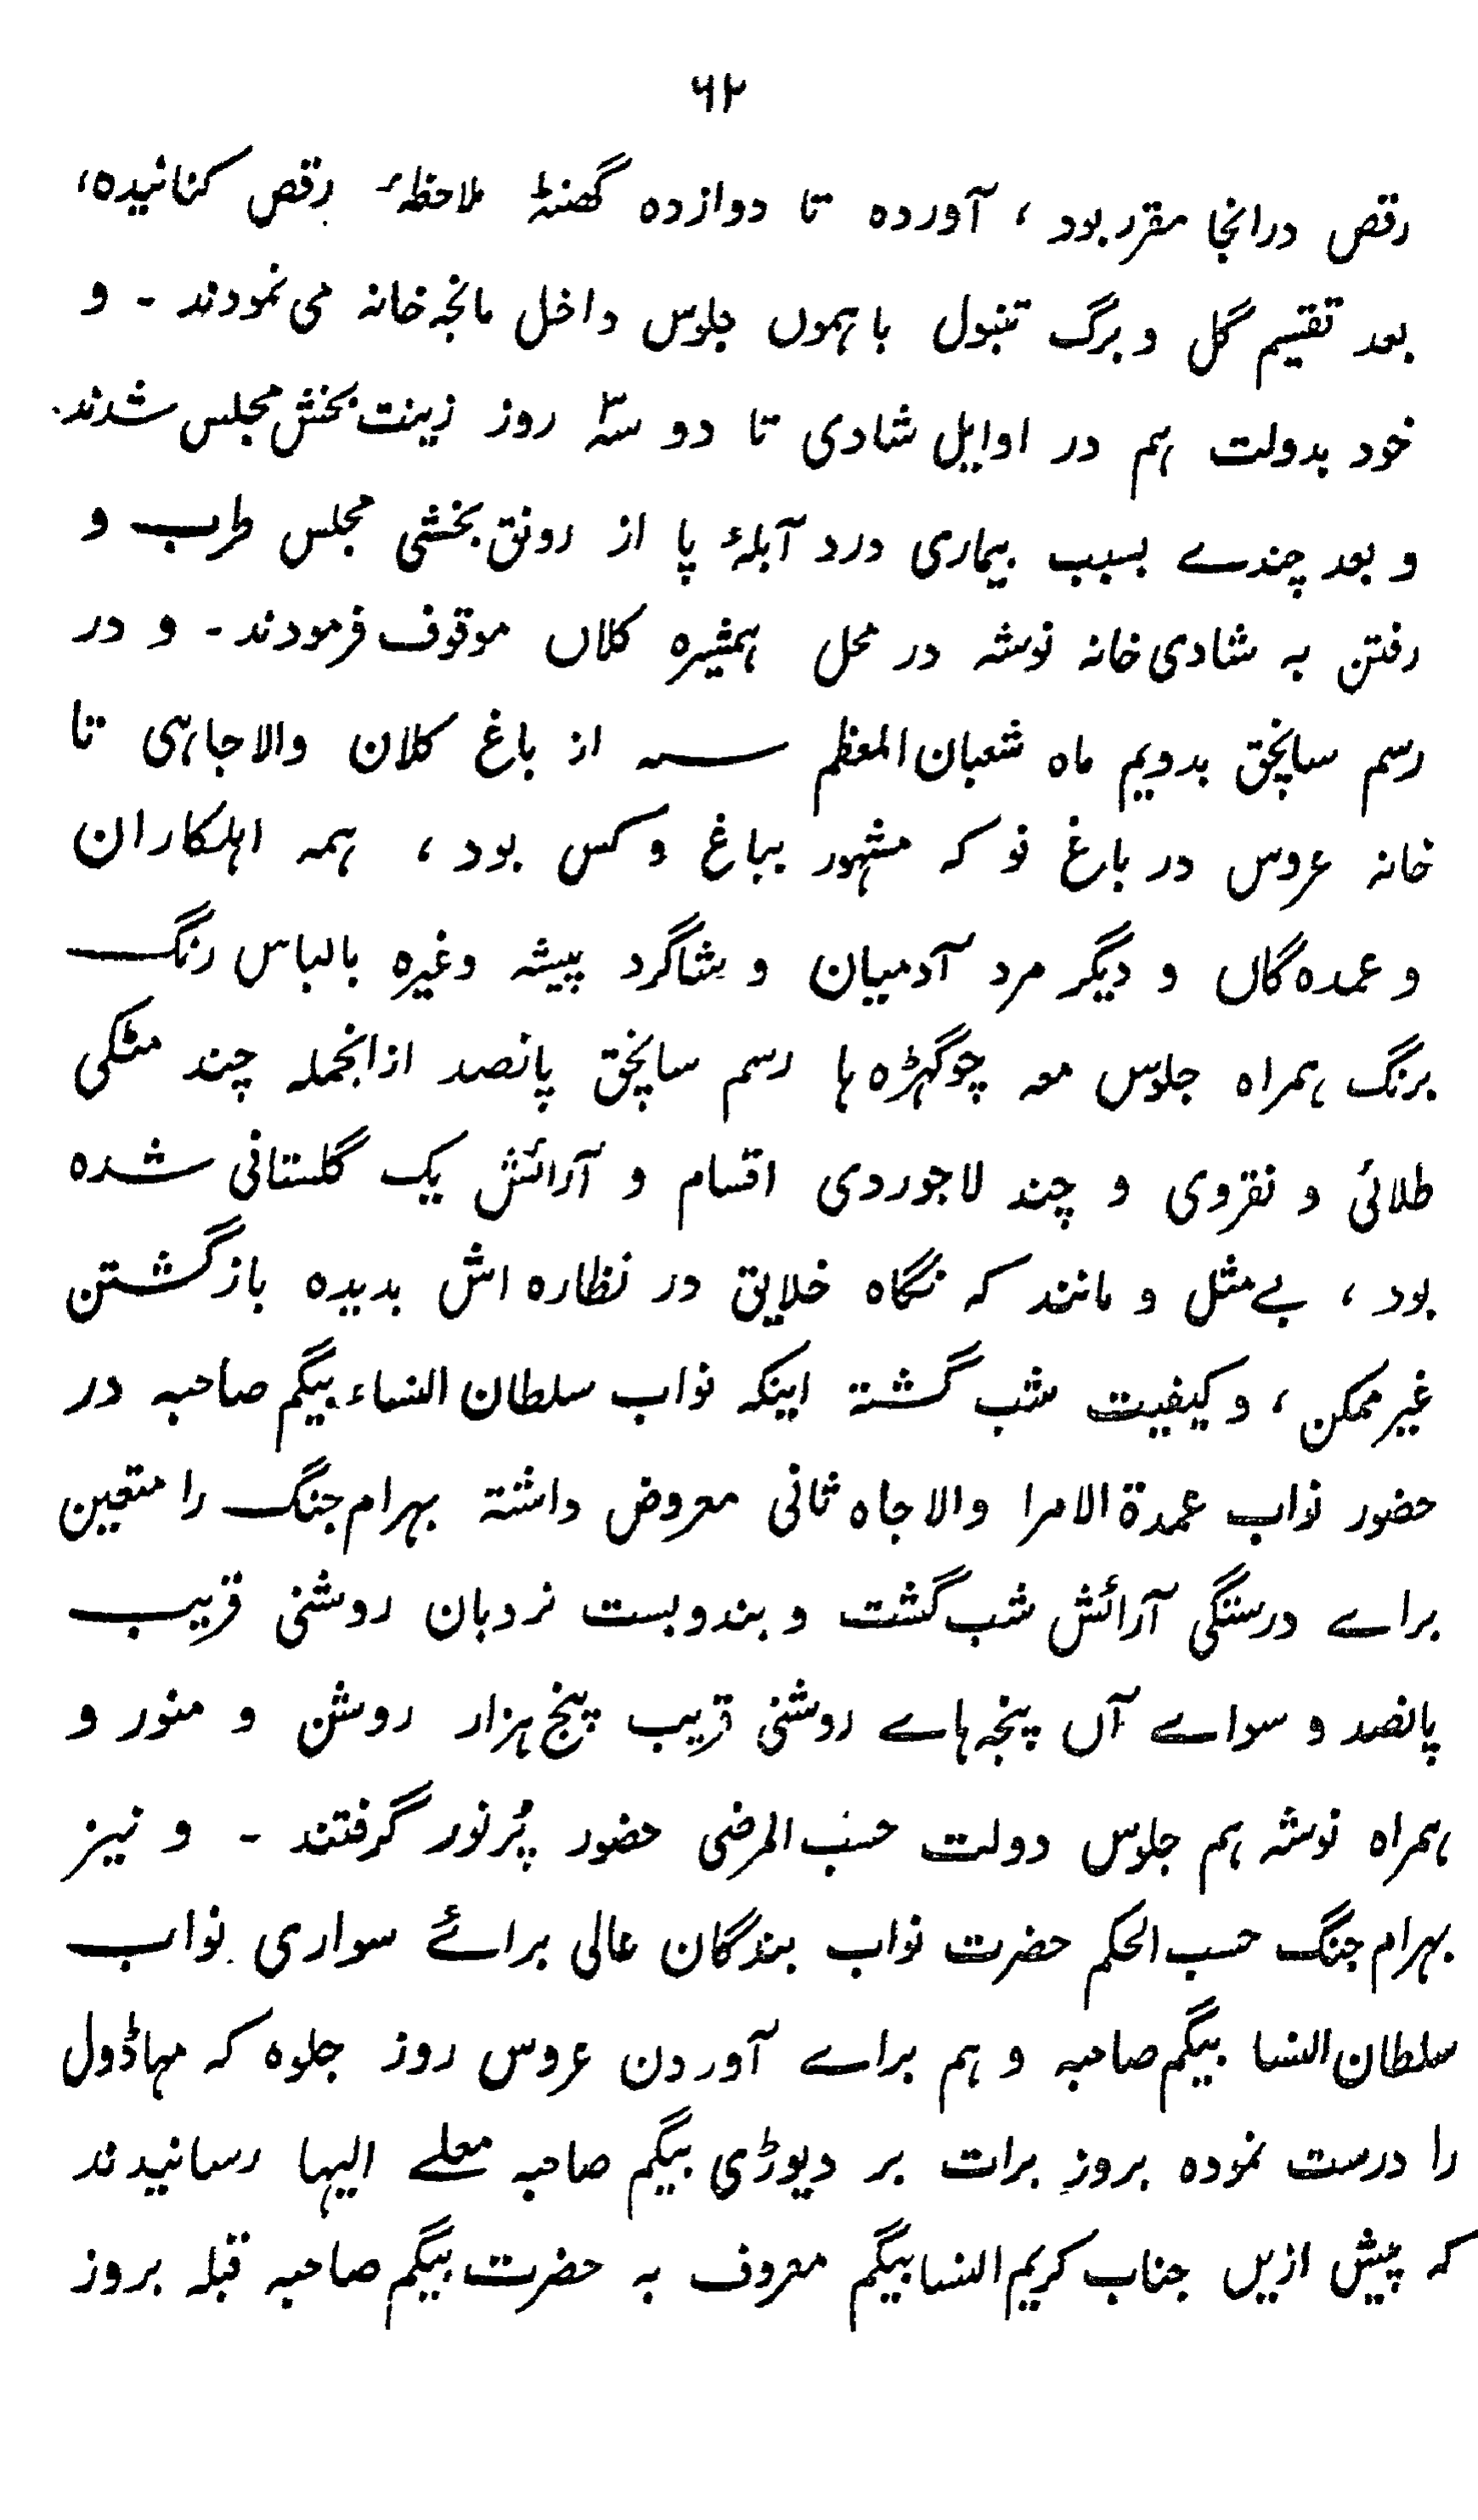 ۶۲
رقص درانجا مقرر بود ، آورده تا دوازده گھنٹہ ملاحظہٴ رقص کنانیدہ،
بعد تقسیم گل و برگ تنبول باہموں جلوس داخل مانجہ خانہ می نمودند ۔ و
خود بدولت ہم در اوایل شادی تا دو سہ روز زینت بخش مجلس شدند.
و بعد چندے بسبب بیماری درد آبلۂ پا از رونق بخشی مجلس طرب و
رفتن بہ شادی خانہ نوشہ در محل ہمشیرہ کلاں موقوف فرمودند ۔ و در
رسم سانچق بدویم ماہ شعبان المعظم سنہ از باغ کلان والاجاہی تا
خانہ عروس در باغ نو کہ مشہور بباغ وکس بود ، ہمہ اہلکاران
و عمدہ گاں و دیگر مرد آدمیان و شاگرد پیشہ وغیرہ بالباس رنگ
برنگ ہمراہ جلوس معہ چوگہڑہ ہا رسم سانچق پانصد ازانجملہ چند مٹکی
طلائی و نقروی و چند لاجوردی اقسام و آرائش یک گلستانی شدہ
بود ، بے مثل و مانند کہ نگاہ خلایق در نظارہ اش بدیدہ بازگشتن
غیر ممکن ، و کیفیت شب گشتہ اینکہ نواب سلطان النساء بیگم صاحبہ در
حضور نواب عمدۃ الامرا والاجاہ ثانی معروض داشتہ بہرام جنگ را متعین
براے درستگی آرائش شب گشت و بندوبست نردبان روشنی قریب
پانصد و سواے آں پنجہ ہاے روشنی قریب پنج ہزار روشن و منور و
ہمراہ نوشہ ہم جلوس دولت حسب المرضی حضور پُرنور گرفتند ۔ و نیز
بہرام جنگ حسب الحکم حضرت نواب بندگان عالی برائے سواری نواب
سلطان النسا بیگم صاحبہ و ہم براے آوردن عروس روز جلوہ کہ مہاڈول
را درست نمودہ بروزِ برات بر دیوڑی بیگم صاحبہ معلے الیہا رسانیدند
کہ پیش ازیں جناب کریم النسا بیگم معروف بہ حضرت بیگم صاحبہ قبلہ بروز